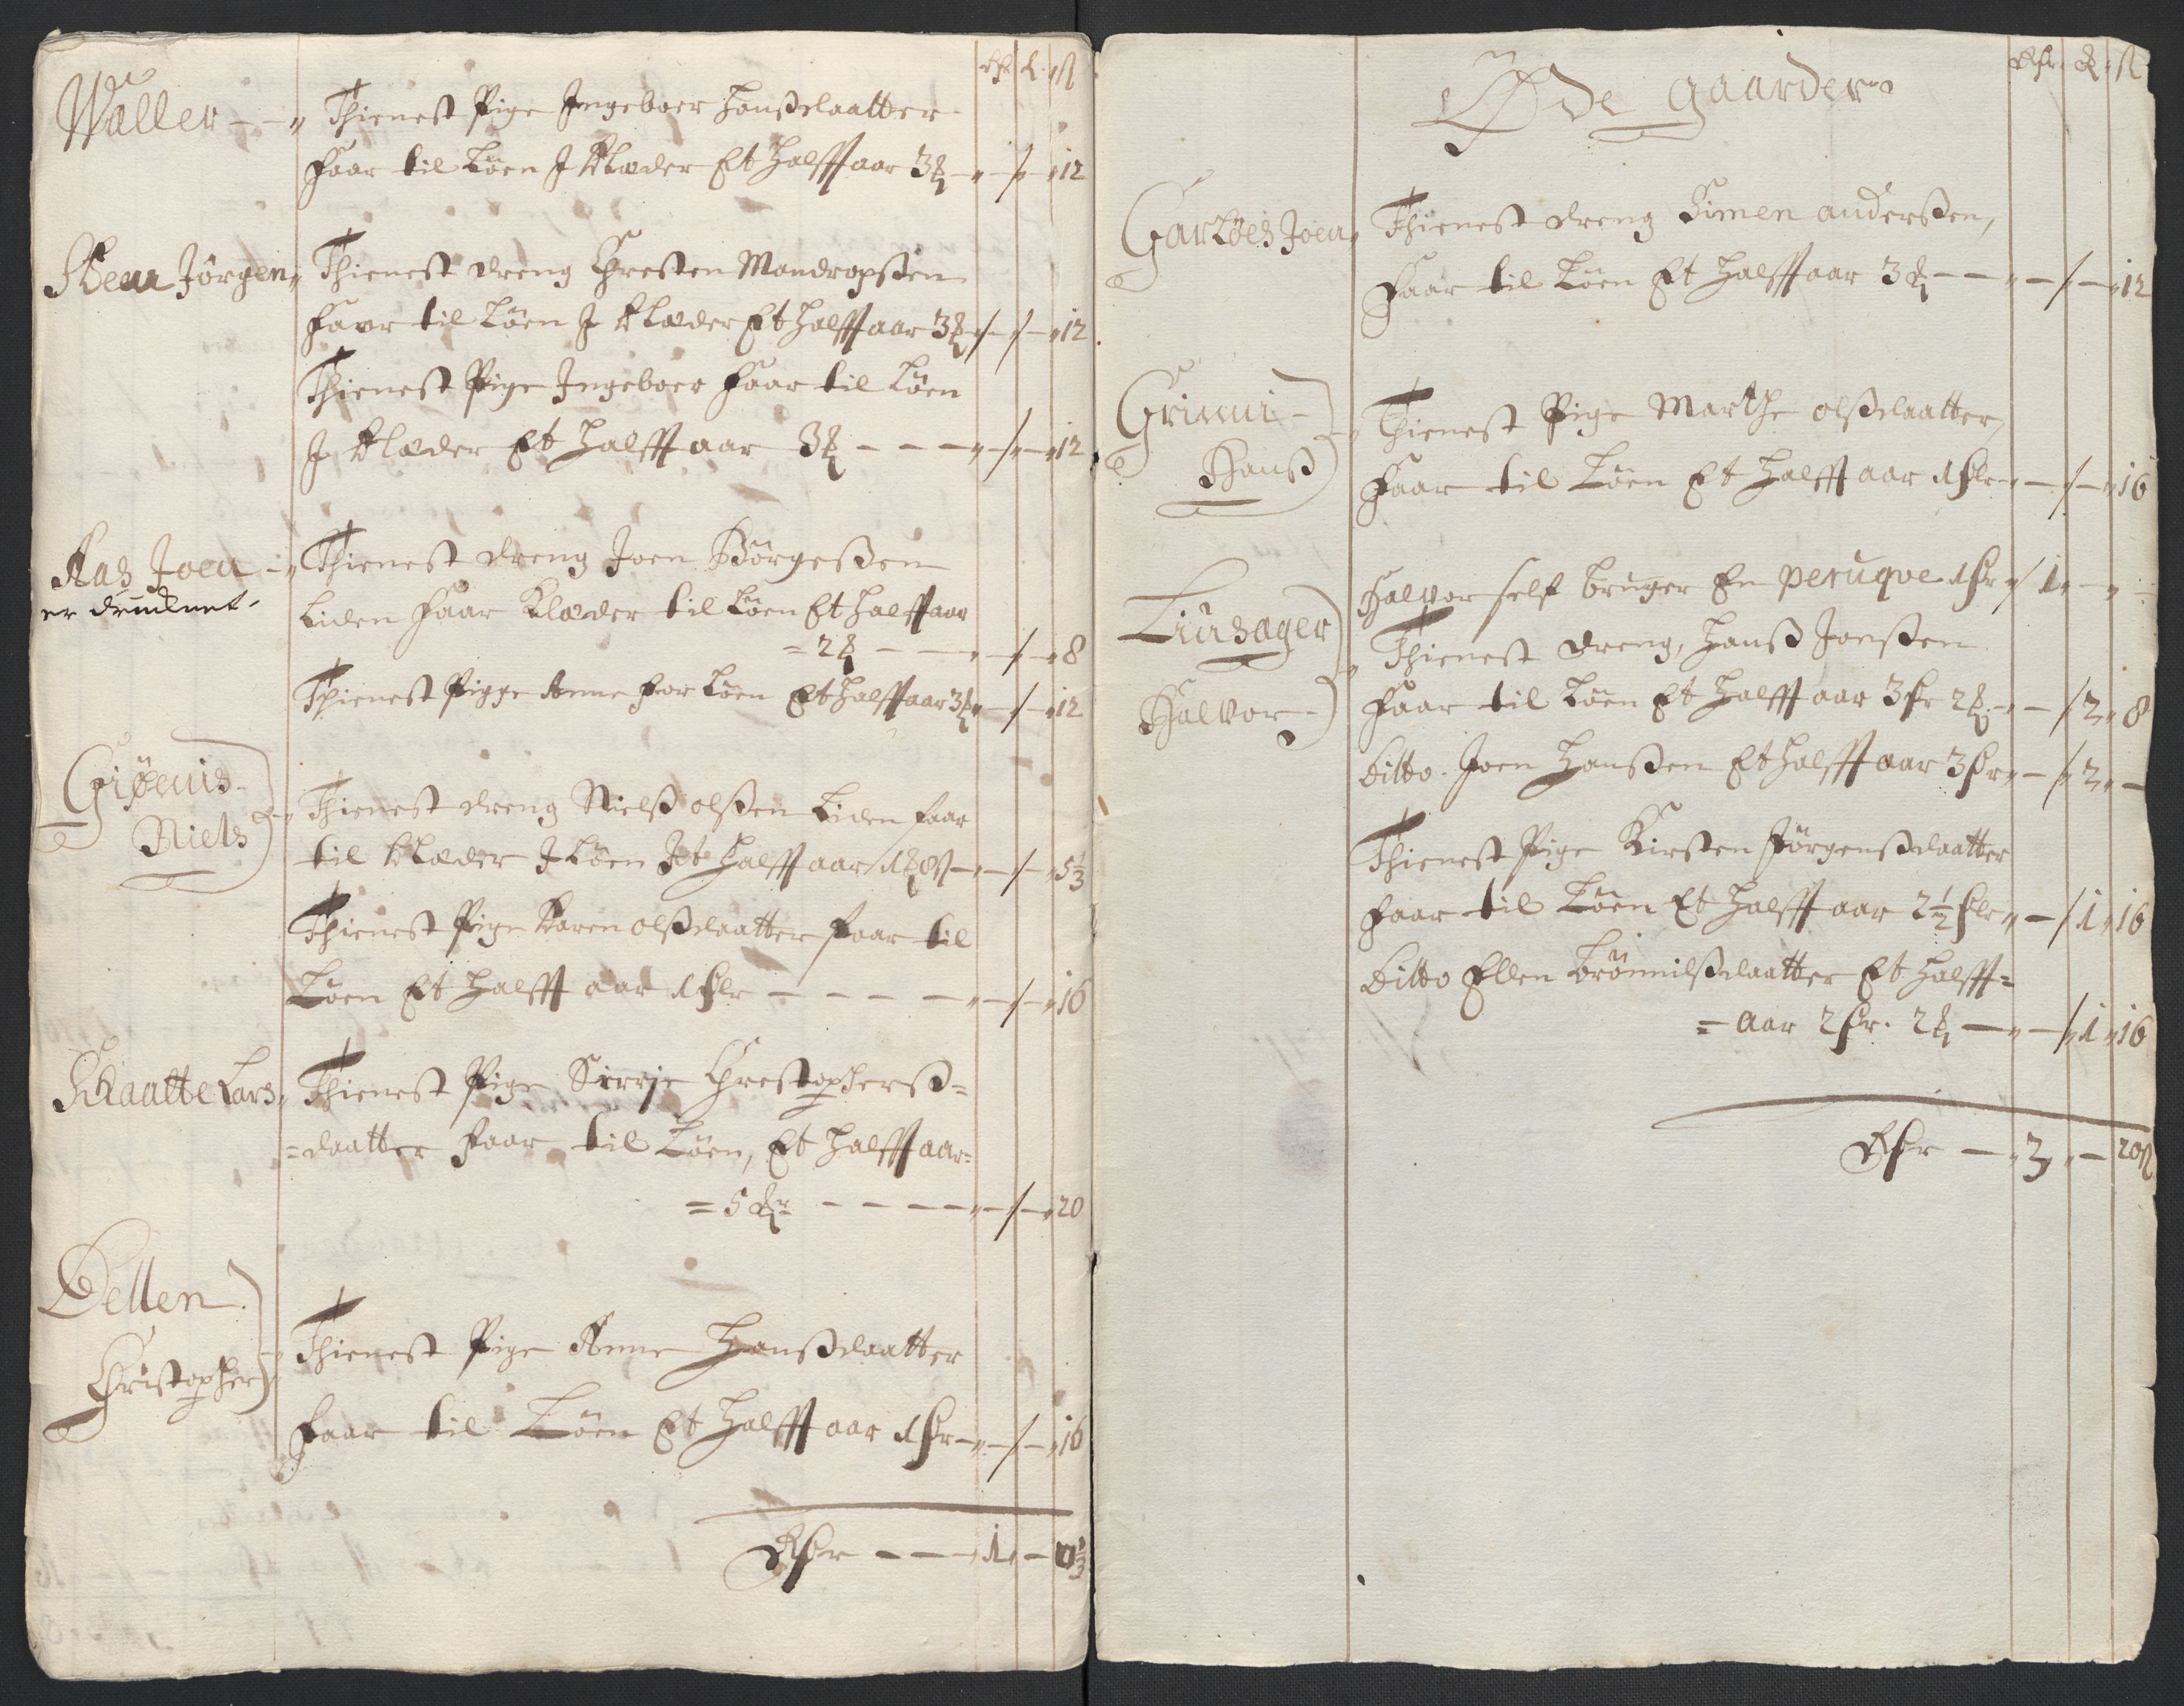 Rdr. ort. ß
Waller — Thienest Pige Ingeboer Hanßdaatter
Faar til Løen I Klæder Et Halfft aar 3 ort — 12
Skeen Jörgen Thienest dreng Chresten Mandropßen
Faar til Løen I Klæder Et Halfft aar 3 ort — 12
Thienest Pige Ingeboer Faar til Løen
I Klæder Et Halfft aar 3 ort — 12
Aas Joen Thienest dreng Joen Börgeßen
er
Liden Faar Klæder til Løen Et Halfft aar
= 2 ort — 8
Thienest Pigge Anne for Løen Et Halfft aar 3 ort — 12
Giøenis
Niels
Thienest dreng Nielß olßen Liden faar
til Klæder I Løen Et Halfft aar 1 ort 8 ß — 5 1/3
Thienest Pige Karen olßdaatter faar til
Løen Et Halfft aar 1 Rdr — 16
Skaatte Lars Thienest Pige Sirrje Chrestopherß=
=daatter Faar til Løen, Et Halfft aar=
= 5 ort — 20
Dellen
Christopher
Thienest Pige Anne Hanßdaatter
Faar til Løen Et Halfft aar 1 Rdr — 16
Rdr — 1 —
Øde gaarder
Rdr. ort. ß
Garlöes Joen Thienest dreng Simen anderßen,
Faar til Løen Et Halfft aar 3 ort — 12
Grimi
Hanß
Thienest Pige Marthe olßdaatter,
Faar til Løen Et Halfft aar 1 Rdr — 16
Halvor self bruger En peruqve 1 Rdr 1 —
Liusager
Halvor
Thienest dreng, Hanß Jonßen
Faar til Løen Et Halfft aar 3 Rdr 2 ort — 2 8
Ditto. Joen Hanßen Et Halfft aar 3 Rdr — 2 —
Thienest Pige Kirsten Jörgenßdaatter
Faar til Løen Et Halfft aar 2 1/2 Rdr — 1 16
Ditto Ellen Brönnilßdaatter Et Halfft=
= aar 2 Rdr. 2 ort — 1 16
Rdr — 3 — 20 ß